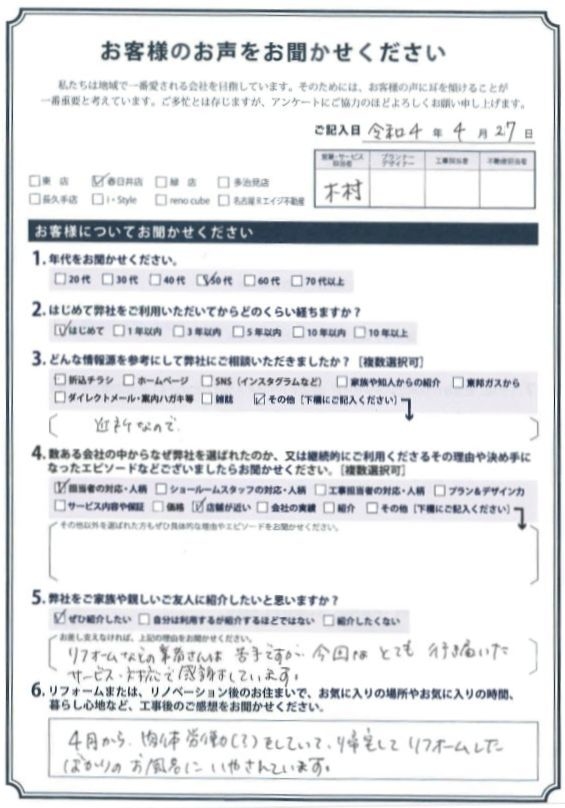 お客様のお声をお聞かせください
私たちは地域で一番愛される会社を目指しています。そのためには、お客様の声に耳を傾けることが
一番重要と考えています。ご多忙とは存じますが、アンケートにご協力のほどよろしくお願い申し上げます。
ご記入日 令和4 年 4 月 27 日
営業・サービス担当者 プランナーデザイナー 工事担当者 不動産担当者
木村
東 店 春日井店 緑 店 多治見店
長久手店 i・Style reno cube 名古屋Rエイジ不動産
お客様についてお聞かせください
1. 年代をお聞かせください。
20代 30代 40代 50代 60代 70代以上
2. はじめて弊社をご利用いただいてからどのくらい経ちますか？
はじめて 1年以内 3年以内 5年以内 10年以内 10年以上
3. どんな情報源を参考にして弊社にご相談いただきましたか？［複数選択可］
折込チラシ ホームページ SNS（インスタグラムなど） 家族や知人からの紹介 東邦ガスから
ダイレクトメール・案内ハガキ等 雑誌 その他［下欄にご記入ください］
近所なので.
4. 数ある会社の中からなぜ弊社を選ばれたのか、又は継続的にご利用くださるその理由や決め手に
なったエピソードなどございましたらお聞かせください。［複数選択可］
担当者の対応・人柄 ショールームスタッフの対応・人柄 工事担当者の対応・人柄 プラン＆デザイン力
サービス内容や保証 価格 店舗が近い 会社の実績 紹介 その他［下欄にご記入ください］
その他以外を選ばれた方もぜひ具体的な理由やエピソードをお聞かせください。
5. 弊社をご家族や親しいご友人に紹介したいと思いますか？
ぜひ紹介したい 自分は利用するが紹介するほどではない 紹介したくない
お差し支えなければ、上記の理由をお聞かせください。
リフォームなどの業者さんは 苦手ですが、今回は とても 行き届いた
サービス・対応で感謝しています。
6. リフォームまたは、リノベーション後のお住まいで、お気に入りの場所やお気に入りの時間、
暮らし心地など、工事後のご感想をお聞かせください。
4月から、肉体労働(?)をしていて、帰宅して リフォームした
ばかりの お風呂に いやされています。